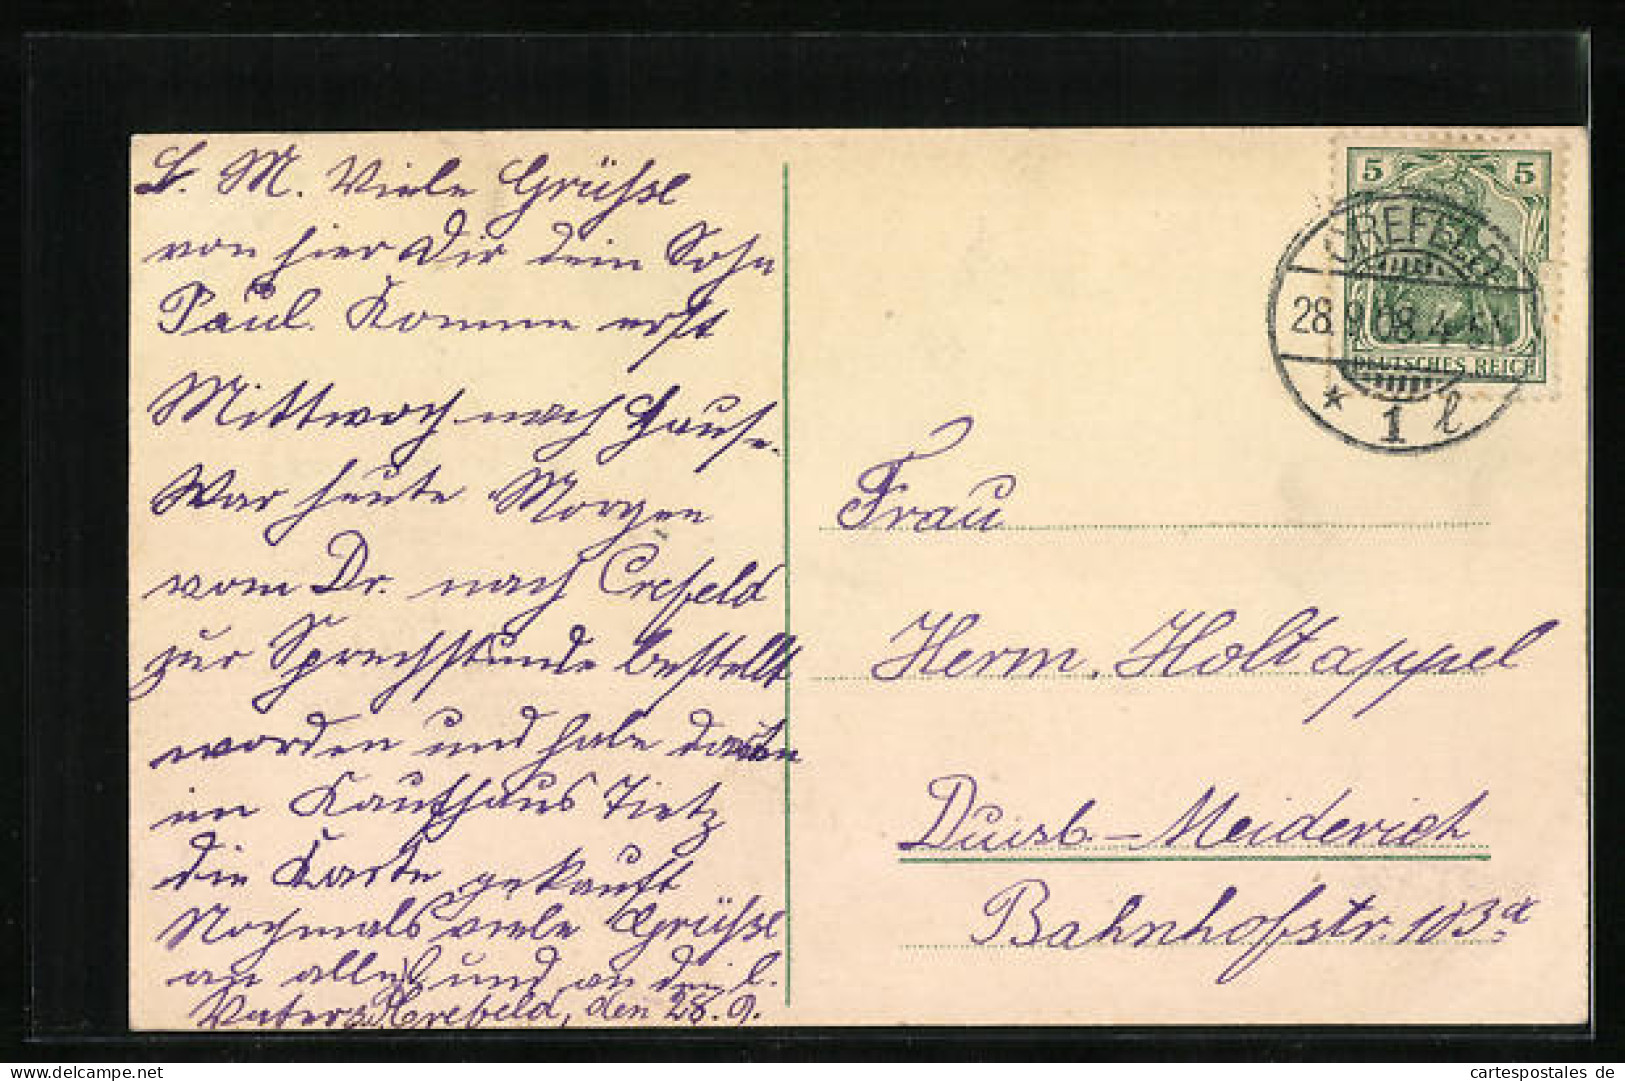 L. M. Viele Grüße
von hier Dir dein Sohn
Paul. Komme erst
Mittwoch nach Hause.
War heute Morgen
vom Dr. nach Crefeld
zur Sprechstunde bestellt
worden und habe dann
im Kaufhaus Tietz
die Karte gekauft
Nochmals viele Grüße
an alle und an den l.
Vater. Crefeld, den 28. 9.
5 5
CREFELD
28.9.08. 4-5N
DEUTSCHES REICH
* 1 l
Frau
Herm. Holtappel
Duisb-Meiderich
Bahnhofstr. 103a
cartespostales de